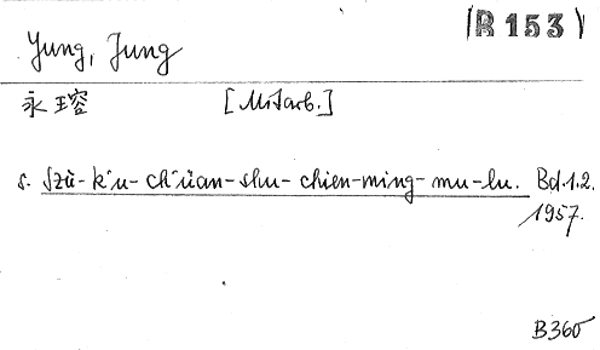 (R 153)
Yung, Jung
永瑢 [Mitarb.]
s. Szù-k'u-ch'üan-shu-chien-ming-mu-lu. Bd.1.2.
1957.
B360